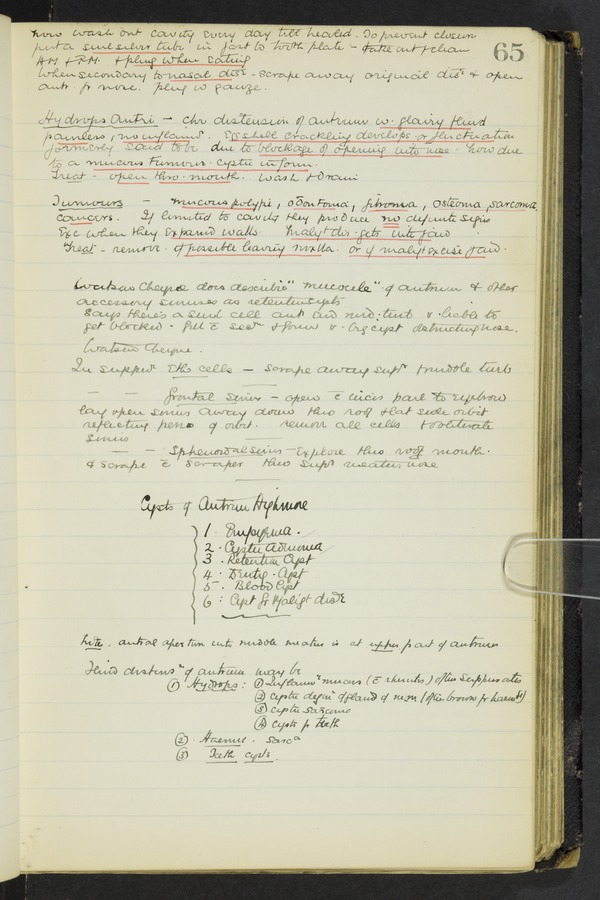 65
now wash out cavity every day till healed. To prevent closure
put a small silver tube in fast to tooth plate - take out & clean
AM & PM. & plug when eating
When secondary to nasal disᵉ - scrape away original disᵉ & open
ant. fr nose. plug w gauze.
Hydrops Antri - chr distension of antrum w. glairy fluid
painless, no inflamⁿ. Egg shell crackling develops or fluctuation
formerly said to be due to blockage of opening into nose. now due
to a mucous tumour. cystic in form.
Treat - open thro. mouth. wash & drain
Tumours - mucous polypi, odontoma, fibroma, osteoma, sarcoma,
cancers. If limited to cavity they produce no definite signs
Exc when they expand walls. Maligt dis. gets into jaw
Treat - remove. if possible leaving maxilla. or if maligt excise jaw.
Watson Cheyne does describe "mucocele" of antrum & other
accessory sinuses as retention cysts
Says there's a small cell ant and mid: turb & liable to
get blocked. fill c̄ secⁿ & form v. big cyst obstructing nose.
Watson Cheyne.
In suppurⁿ Eth. cells - scrape away supʳ & middle turb
— — frontal sinus - open c̄ incis parl to eyebrow
lay open sinus away down thro roof & lat side orbit
reflecting peri of orbit. remove all cells & obliterate
sinus
— — Sphenoidal sinus - Explore thro roof mouth.
& scrape c̄ scraper thro supʳ meatus nose
Cysts of Antrum Highmore
1. Empyema.
2. Cystic adenoma
3. Retention Cyst
4. Dentig. Cyst
5. Blood Cyst
6. Cyst fr Maligt disᵉ
Note. antral aperture into middle meatus is at upper part of antrum
Fluid distensⁿ of antrum may be
① Hydrops: ① Inflamⁿ mucus (c̄ rhinitis) often suppurates
② cystic degⁿ of gland of mem (often brown fr haem)
③ cystic sarcoma
④ cysts fr teeth
② Haemic. sarcᵃ
③ Teeth cysts.